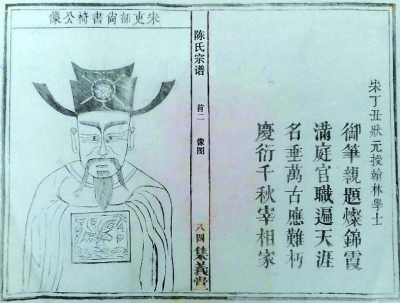 宋丁丑狀元授翰林學士
御筆親題燦錦霞
滿庭官職遍天涯
名垂萬古應難朽
慶衍千秋宰相家
陈氏宗谱
首二
像图
八四
集義堂
宋吏部尚書椅公像